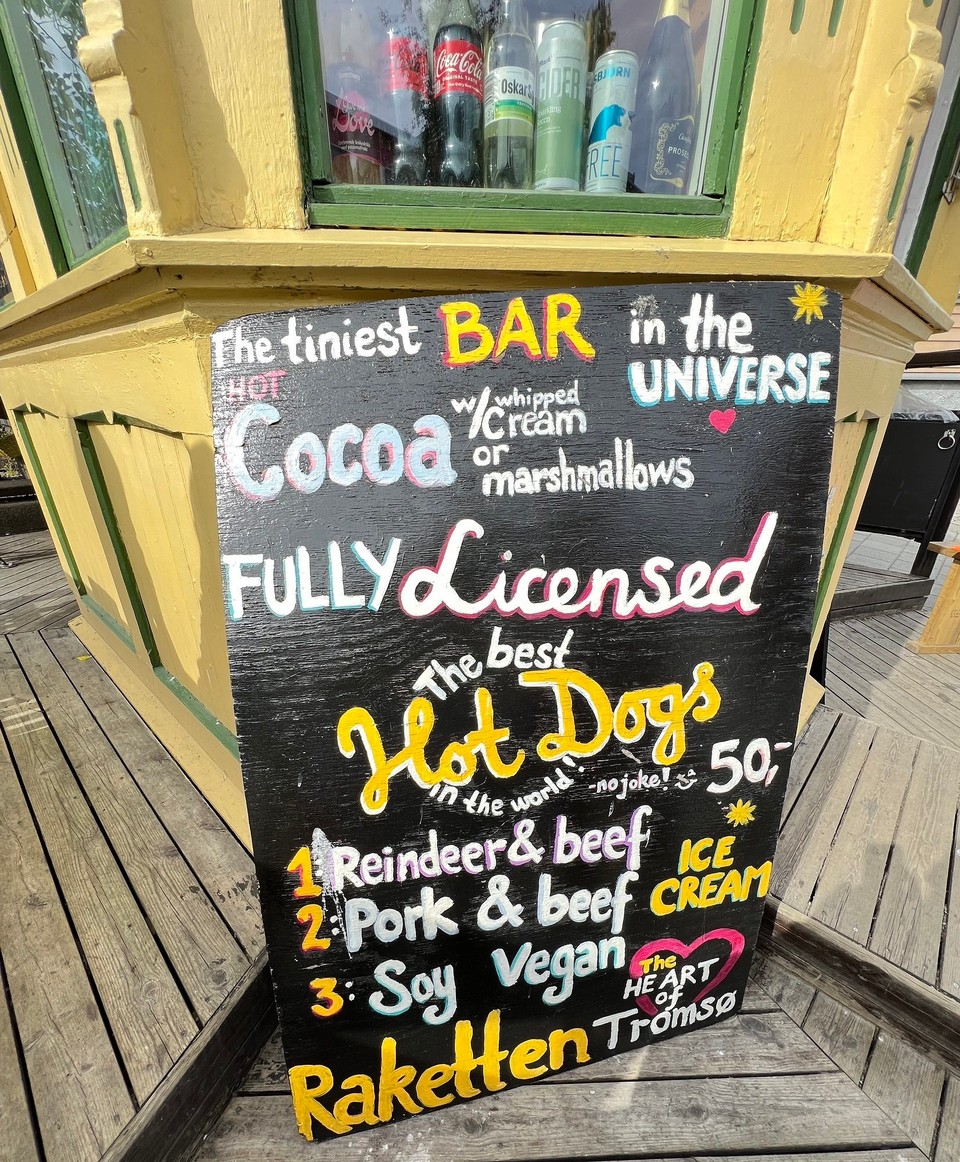 Love
Coca-Cola
ORIGINAL TASTE
Oskar
CIDER
SBJØRN
FREE
PROSECCO
The tiniest BAR in the
UNIVERSE
HOT
Cocoa w/ whipped
cream
or
marshmallows
FULLY Licensed
The best
Hot Dogs
in the world!
-no joke!
50,-
1: Reindeer & beef
2: Pork & beef
3: Soy Vegan
ICE
CREAM
The
HEART
of
Tromsø
Raketten